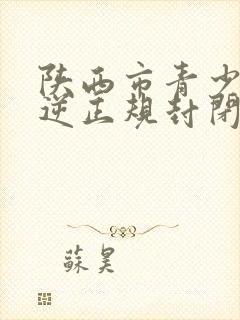 陕西市青少
逆正规封闭
苏昊